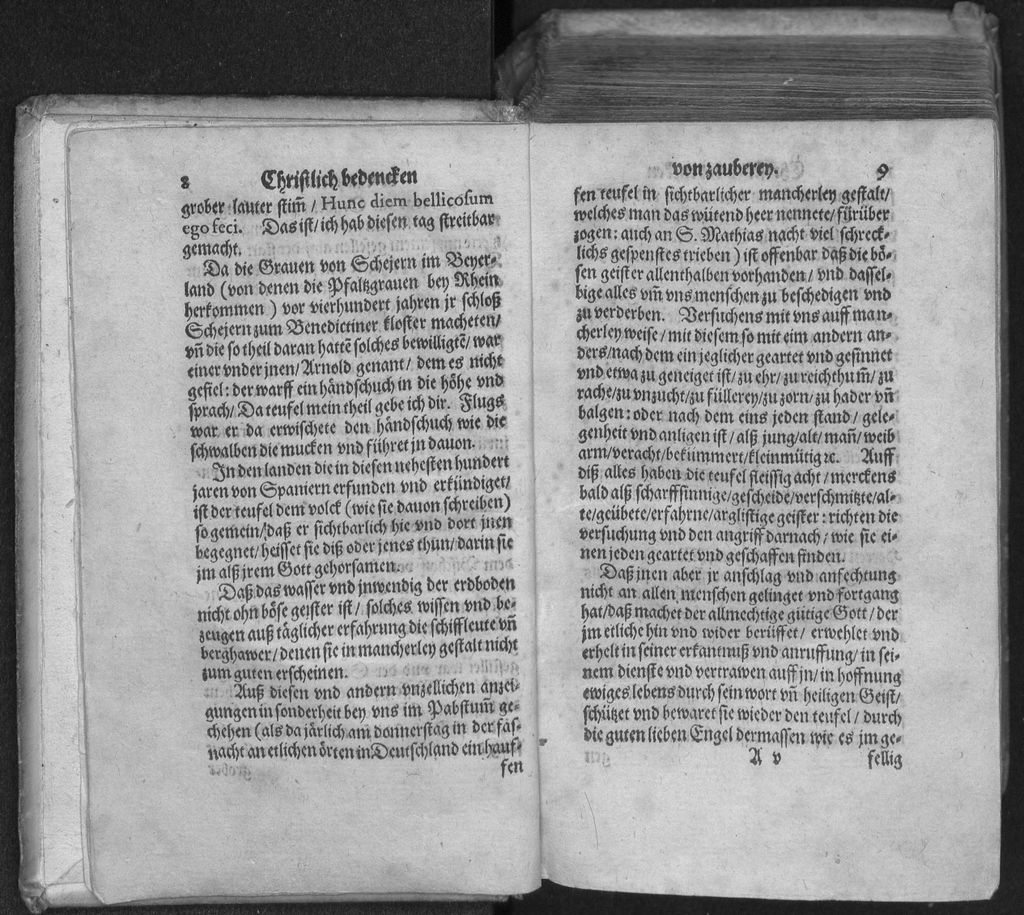 8 Christlich bedencken
grober lauter stim̃ / Hunc diem bellicosum
ego feci. Das ist / ich hab diesen tag streitbar
gemacht.
Da die Grauen von Schejern im Beyer⸗
land (von denen die Pfaltzgrauen bey Rhein
herkommen ) vor vierhundert jahren jr schloß
Schejern zum Benedictiner kloster macheten/
vñ die so theil daran hattẽ solches bewilligtẽ/ war
einer vnder jnen/ Arnold genant/ dem es nicht
gefiel: der warff ein händschuch in die höhe vnd
sprach/ Da teufel mein theil gebe ich dir. Flugs
war er da erwischete den händschuch wie die
schwalben die mucken vnd führet jn dauon.
Jn den landen die in diesen nehesten hundert
jaren von Spaniern erfunden vnd erkündiget/
ist der teufel dem volck (wie sie dauon schreiben)
so gemein/ daß er sichtbarlich hie vnd dort jnen
begegnet/ heisset sie diß oder jenes thun/ darin sie
jm alß jrem Gott gehorsamen.
Daß das wasser vnd jnwendig der erdboden
nicht ohn böse geister ist / solches wissen vnd be⸗
zeugen auß täglicher erfahrung die schiffleute vñ
berghawer/ denen sie in mancherley gestalt nicht
zum guten erscheinen.
Auß diesen vnd andern vnzellichen anzei⸗
gungen in sonderheit bey vns im Pabstum̃ ge⸗
chehen (als da järlich am donnerstag in der fas⸗
nacht an etlichen örten in Deutschland ein hauf⸗
fen
von zauberey. 9
fen teufel in sichtbarlicher mancherley gestalt/
welches man das wütend heer nennete/ fürüber
zogen: auch an S. Mathias nacht viel schreck⸗
lichs gespenstes trieben ) ist offenbar daß die bö⸗
sen geister allenthalben vorhanden/ vnd dassel⸗
bige alles vm̃ vns menschen zu beschedigen vnd
zu verderben. Versuchens mit vns auff man⸗
cherley weise/ mit diesem so mit eim andern an⸗
ders/ nach dem ein jeglicher geartet vnd gesinnet
vnd etwa zu geneiget ist/ zu ehr/ zu reichthum̃/ zu
rache/ zu vnzucht/ zu füllerey/ zu zorn/ zu hader vñ
balgen: oder nach dem eins jeden stand/ gele⸗
genheit vnd anligen ist / alß jung/ alt/ mañ/ weib
arm/ veracht/ bekümmert/ kleinmütig ꝛc. Auff
diß alles haben die teufel fleissig acht / merckens
bald alß scharffsinnige/ gescheide/ verschmitzte/ al⸗
te/ geübete/ erfahrne/ arglistige geister: richten die
versuchung vnd den angriff darnach/ wie sie ei⸗
nen jeden geartet vnd geschaffen finden.
Daß jnen aber jr anschlag vnd anfechtung
nicht an allen menschen gelinget vnd fortgang
hat/ daß machet der allmechtige gütige Gott / der
jm etliche hin vnd wider berüffet/ erwehlet vnd
erhelt in seiner erkantnuß vnd anruffung/ in sei⸗
nem dienste vnd vertrawen auff jn/ in hoffnung
ewiges lebens durch sein wort vñ heiligen Geist/
schützet vnd bewaret sie wieder den teufel / durch
die guten lieben Engel dermassen wie es jm ge⸗
A v fellig